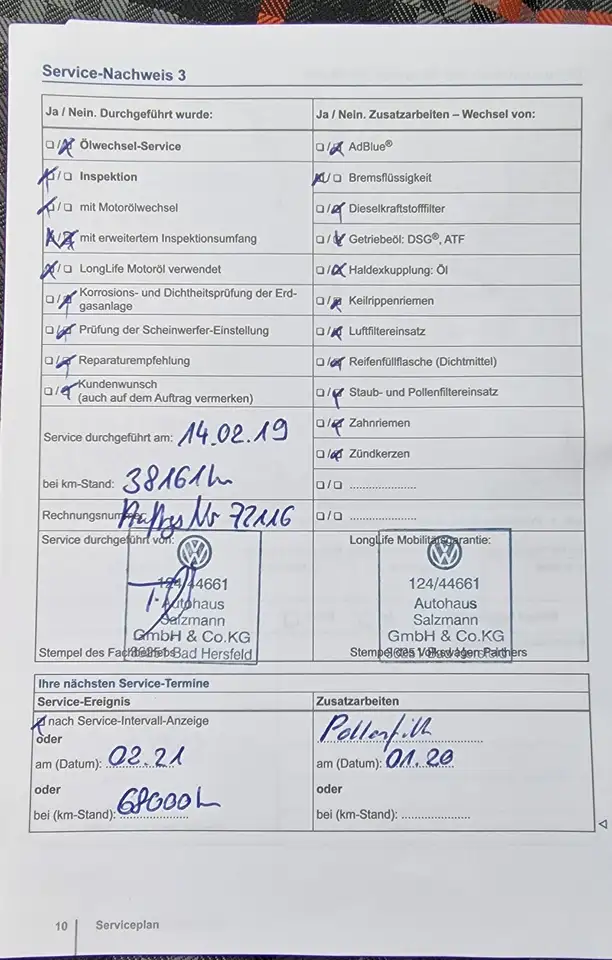 Service-Nachweis 3
Ja / Nein. Durchgeführt wurde:
Ölwechsel-Service
Inspektion
mit Motorölwechsel
mit erweitertem Inspektionsumfang
LongLife Motoröl verwendet
Korrosions- und Dichtheitsprüfung der Erd-
gasanlage
Prüfung der Scheinwerfer-Einstellung
Reparaturempfehlung
Kundenwunsch
(auch auf dem Auftrag vermerken)
Service durchgeführt am: 14.02.19
bei km-Stand: 38161
Rechnungsnummer: Nr 72116
Service durchgeführt von:
124/44661
Autohaus
Salzmann
GmbH & Co.KG
Bad Hersfeld
Stempel des Fachbetriebs
Ja / Nein. Zusatzarbeiten – Wechsel von:
AdBlue®
Bremsflüssigkeit
Dieselkraftstofffilter
Getriebeöl: DSG®, ATF
Haldexkupplung: Öl
Keilrippenriemen
Luftfiltereinsatz
Reifenfüllflasche (Dichtmittel)
Staub- und Pollenfiltereinsatz
Zahnriemen
Zündkerzen
LongLife Mobilitätsgarantie:
124/44661
Autohaus
Salzmann
GmbH & Co.KG
Stempel des Volkswagen Partners
Ihre nächsten Service-Termine
Service-Ereignis
nach Service-Intervall-Anzeige
oder
am (Datum): 02.21
oder
bei (km-Stand): 68000
Zusatzarbeiten
am (Datum): 01.20
oder
bei (km-Stand):
10 Serviceplan